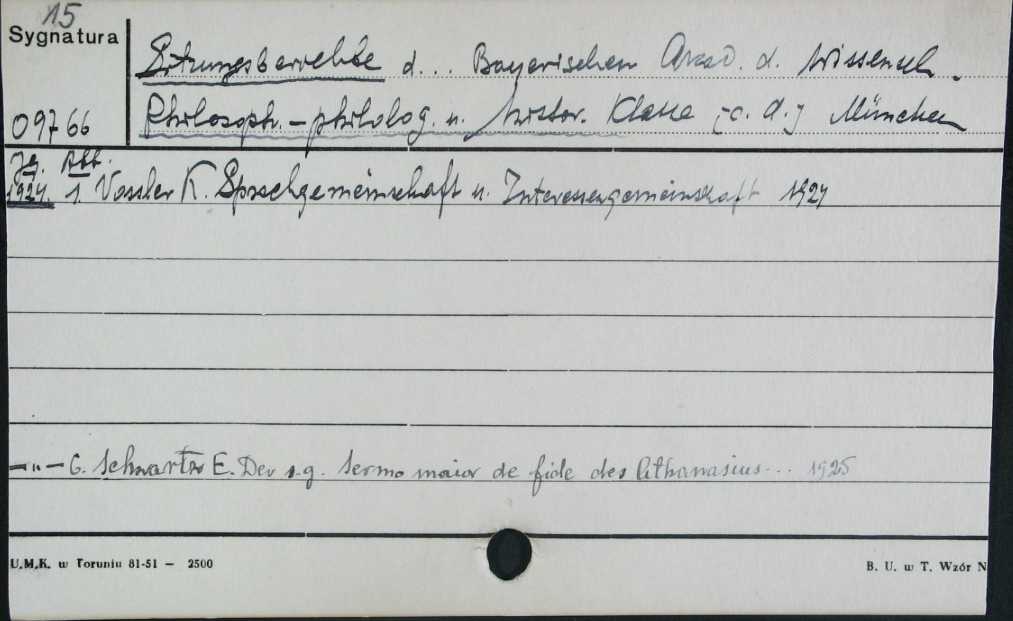 15
Sygnatura
Sitzungsberichte d... Bayerischen Akad. d. Wissensch.
09766
Philosoph.-philolog. u. histor. Klasse [c. d.] München
Jg. Abh.
1924. 1. Vossler K. Sprachgemeinschaft u. Interessengemeinschaft 1924
—"— 6. Schwartz E. Der s.g. Sermo maior de fide des Athanasius... 1925
U.M.K. w Toruniu 81-51 — 2500
B. U. w T. Wzór N